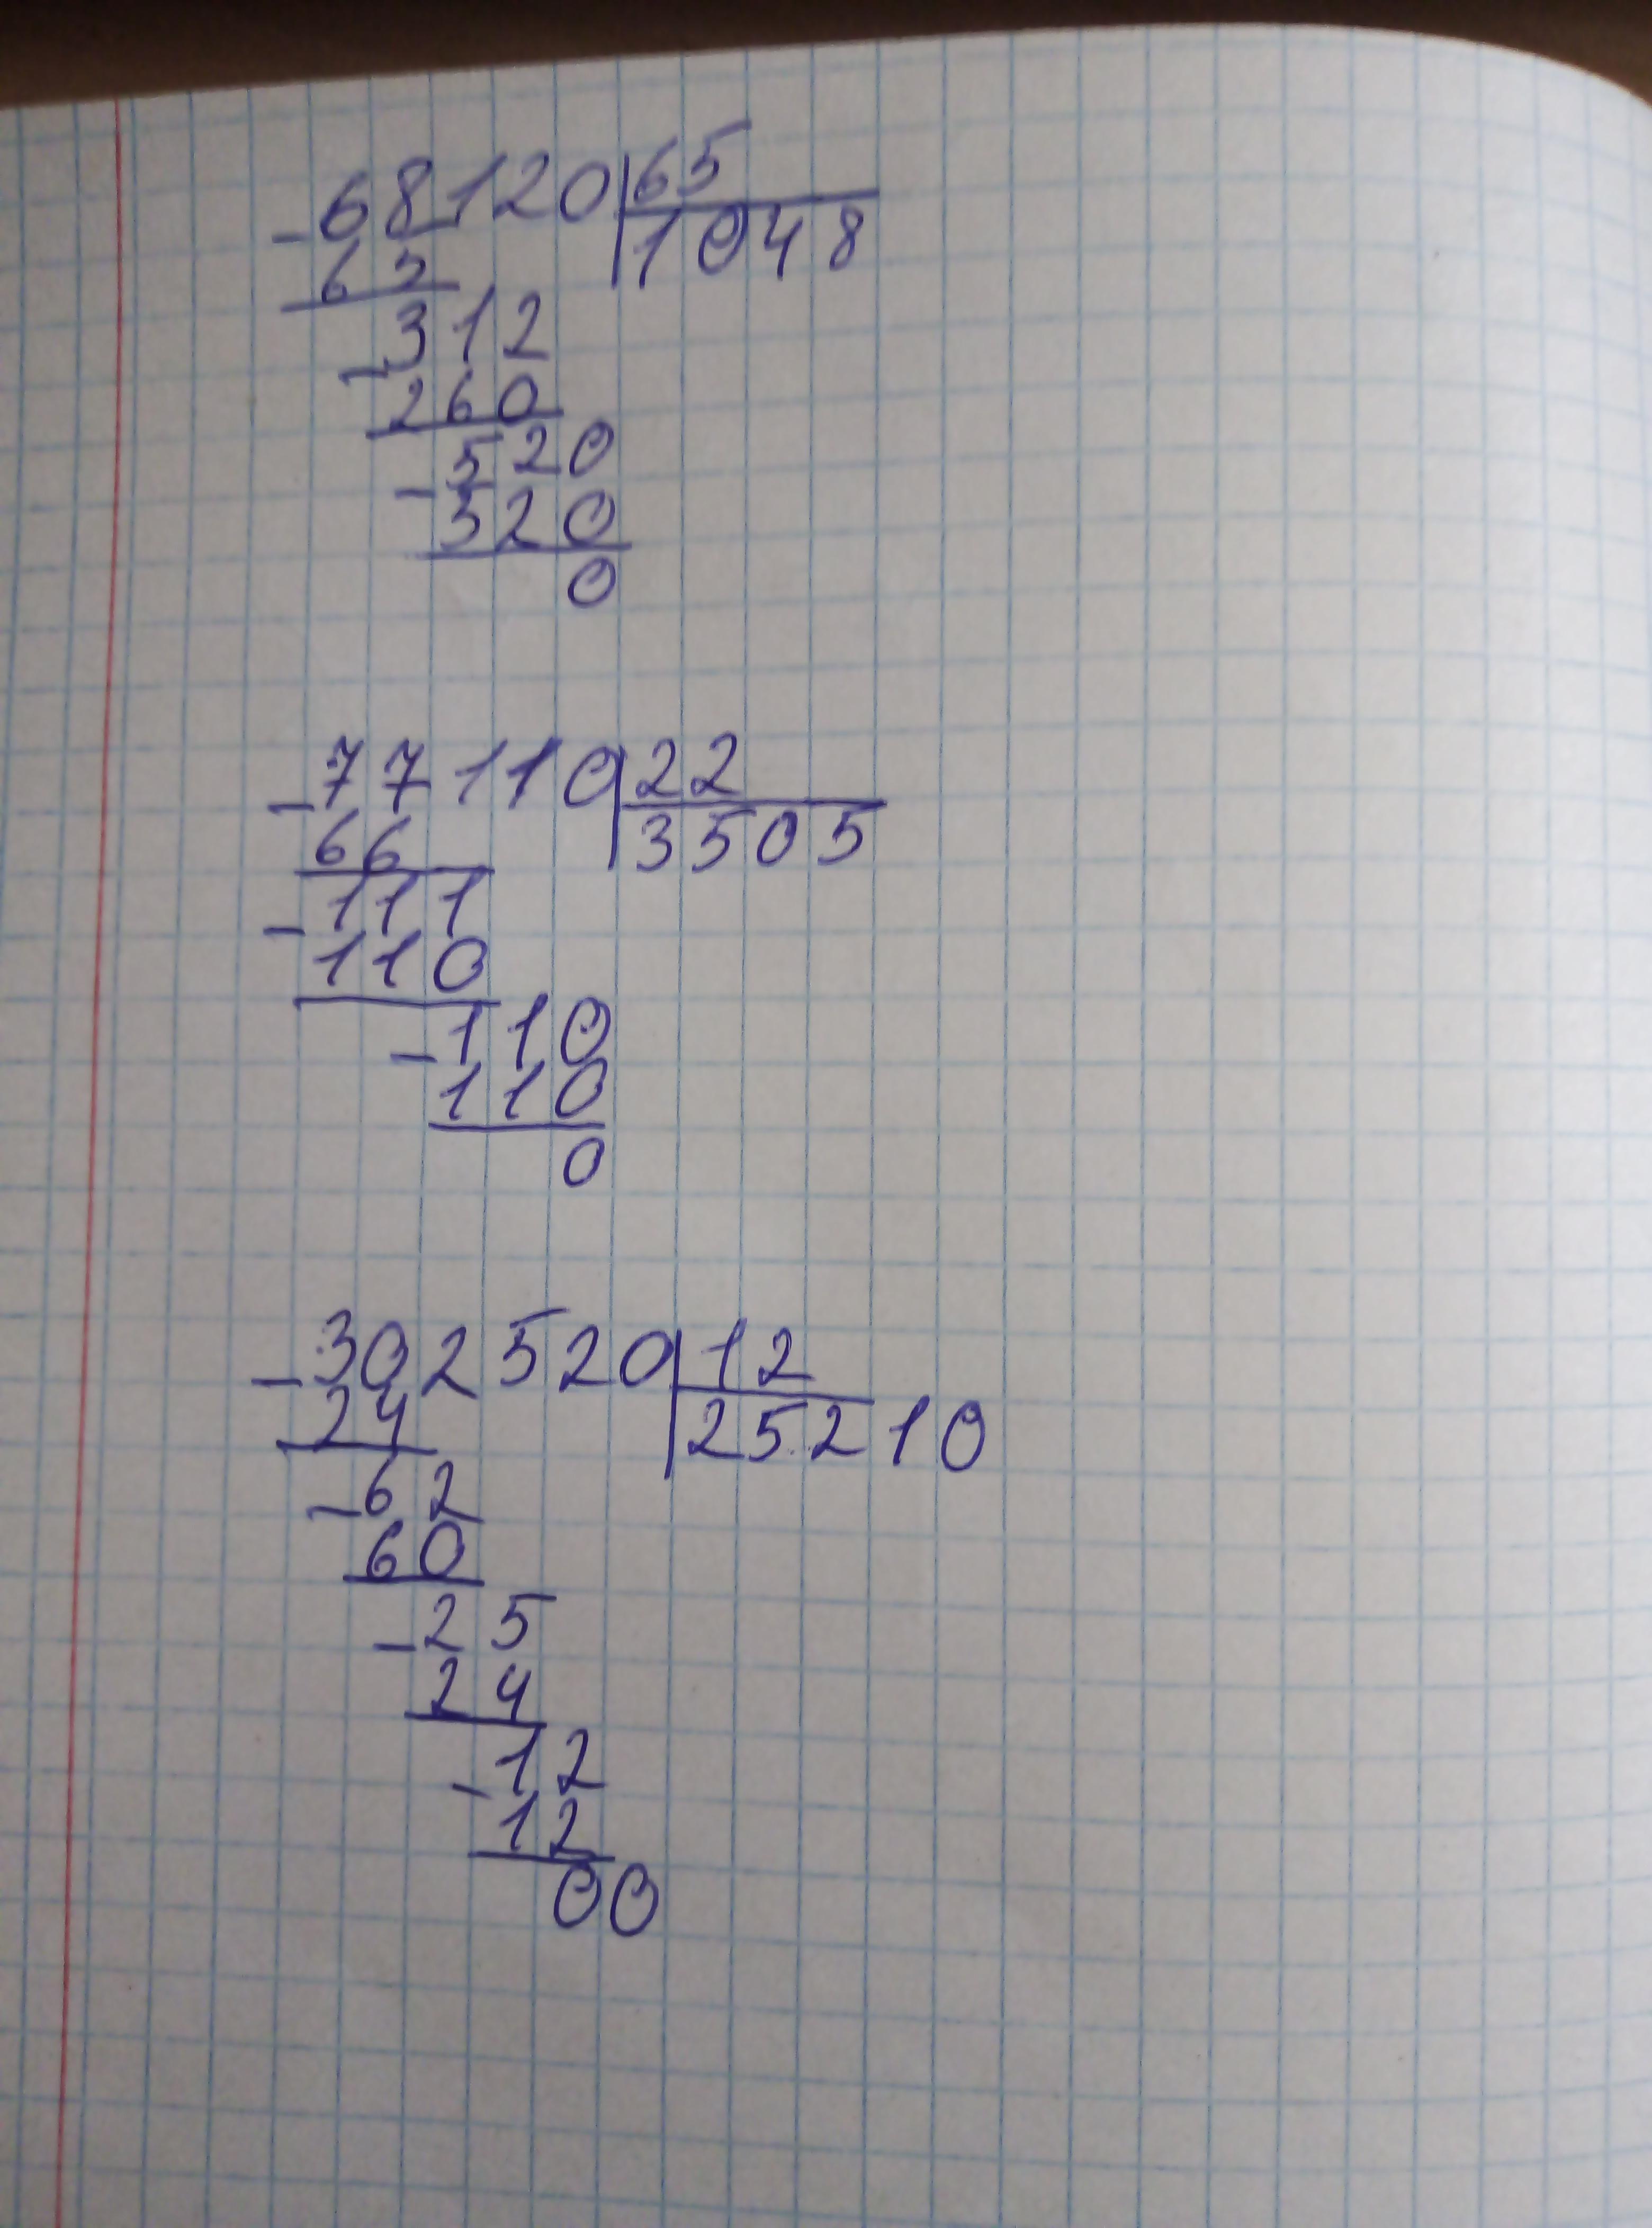 -68120|65
65 |1048
-312
260
-520
520
0
-77110|22
66 |3505
-111
110
-110
110
0
-302520|12
24 |25210
-62
60
-25
24
-12
12
00